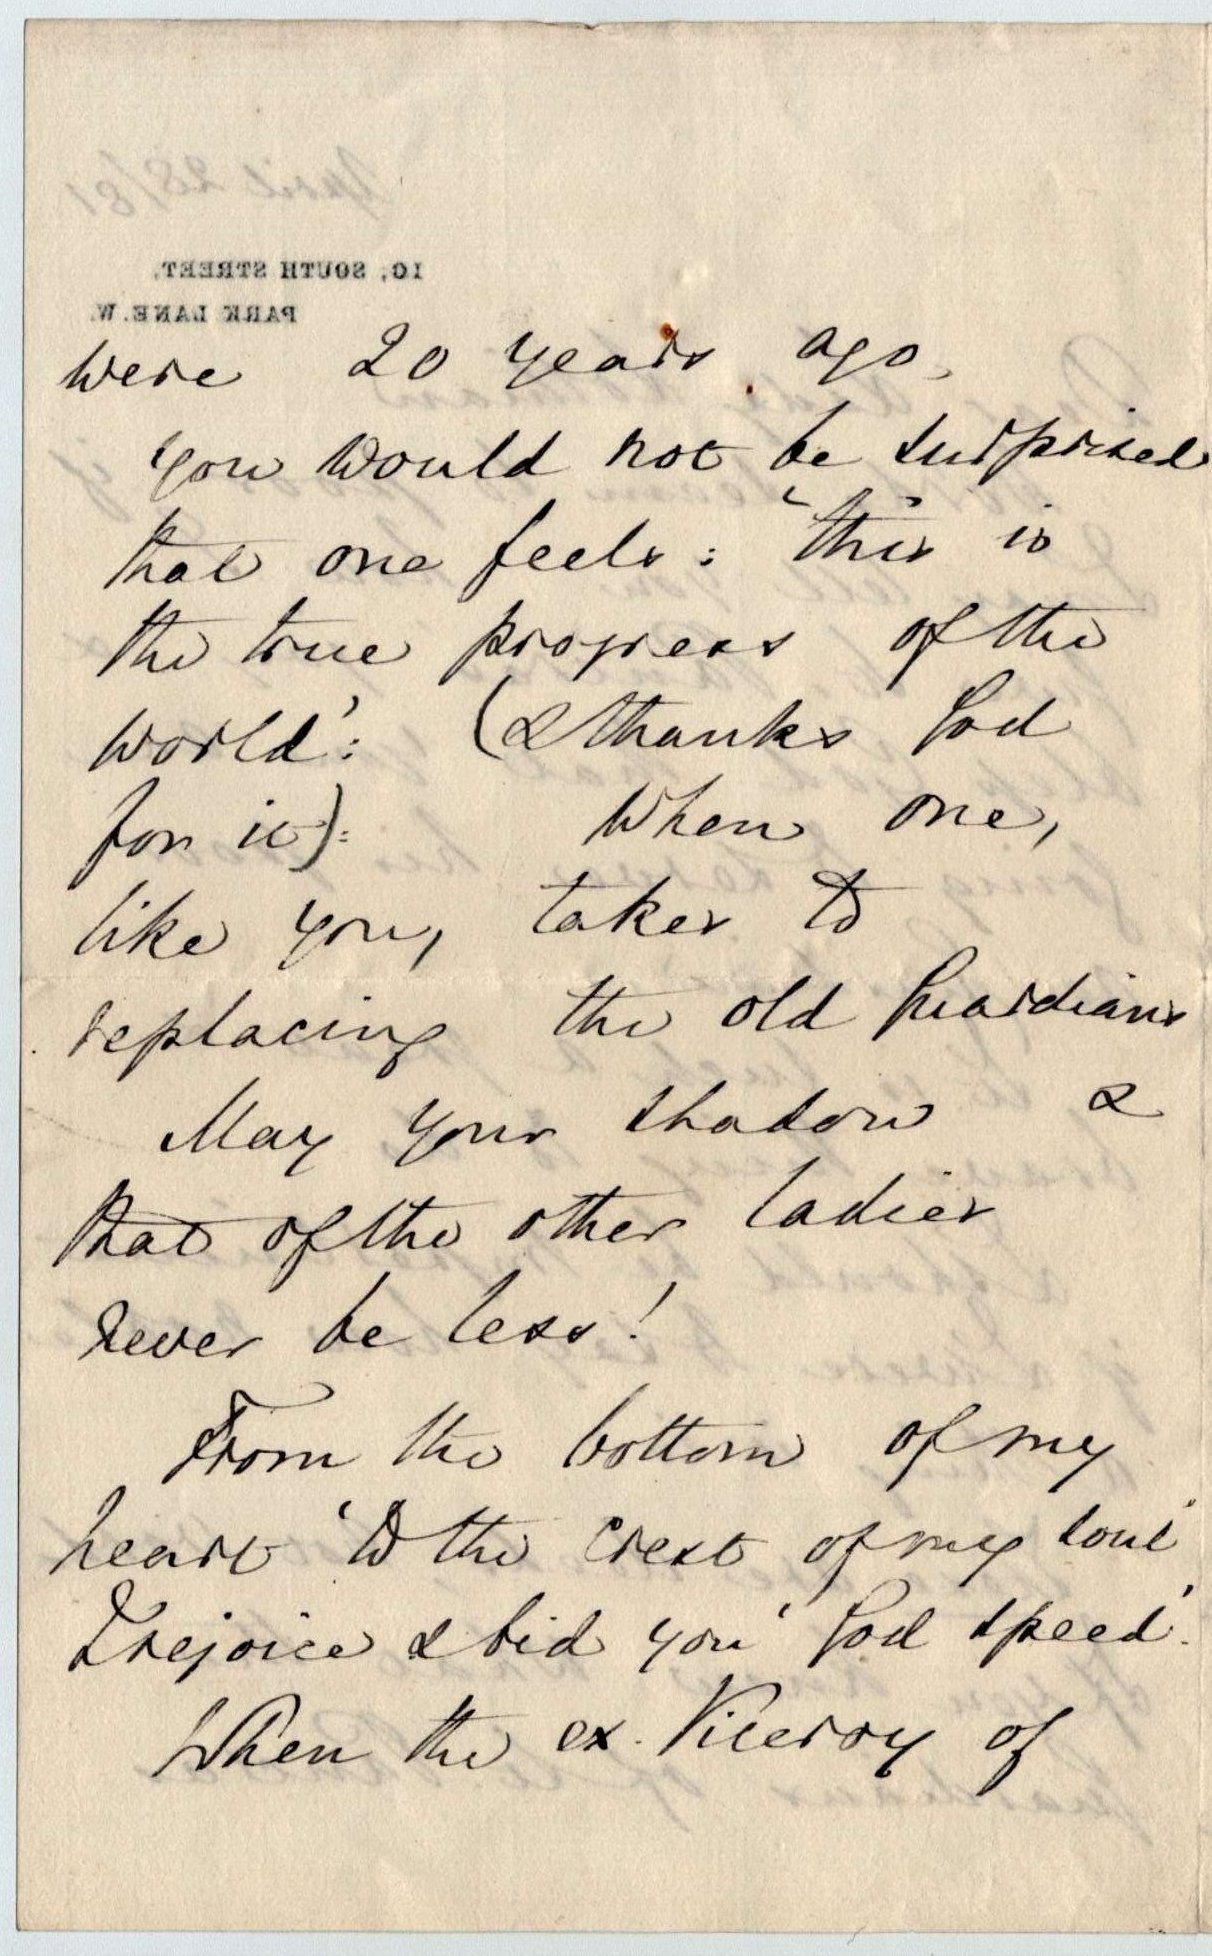 10, SOUTH STREET,
PARK LANE. W.
were 20 years ago,
you would not be surprised
that one feels: 'this is
the true progress of the
world': (& thanks God
for it): When one,
like you, takes to
replacing the old Guardians
May your shadow &
that of the other ladies
never be less!
From the bottom of my
heart 'to the crest of my soul'
I rejoice & bid you 'God speed'.
When the ex. Viceroy of